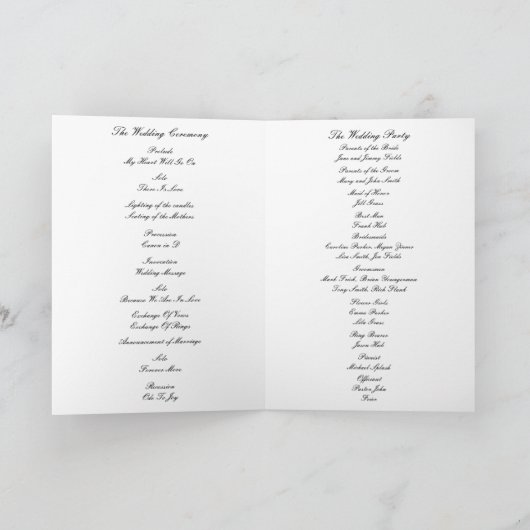 The Wedding Ceremony
Prelude
My Heart Will Go On
Solo
There Is Love
Lighting of the candles
Seating of the Mothers
Procession
Canon in D
Invocation
Wedding Message
Solo
Because We Are In Love
Exchange Of Vows
Exchange Of Rings
Announcement of Marriage
Solo
Forever More
Recession
Ode To Joy
The Wedding Party
Parents of the Bride
Jane and Jimmy Fields
Parents of the Groom
Mary and John Smith
Maid of Honor
Jill Grass
Best Man
Frank Hub
Bridesmaids
Caroline Parker, Megan
Lisa Smith, Jen Fields
Groomsmen
Mark Frick, Brian Youngerman
Tony Smith, Rich Plank
Flower Girls
Emma Parker
Lila Grass
Ring Bearer
Jason Hub
Pianist
Michael Splash
Officiant
Pastor John